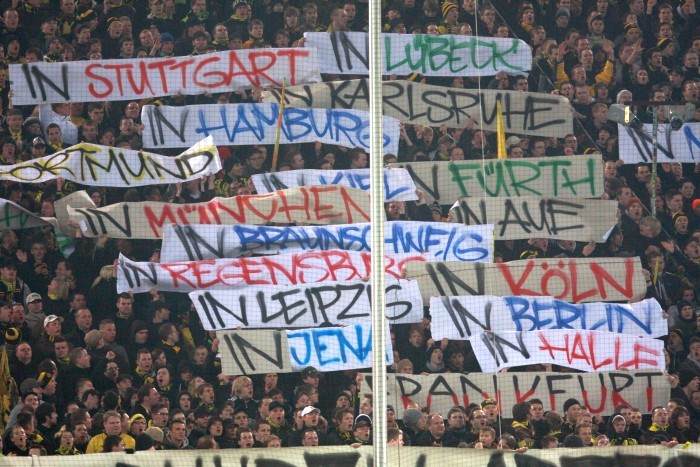 IN STUTTGART
IN LÜBECK
IN KARLSRUHE
IN HAMBURG
IN
DORTMUND
IN KIEL
IN FÜRTH
IN MÜNCHEN
IN AUE
IN BRAUNSCHWEIG
IN REGENSBURG
IN KÖLN
IN LEIPZIG
IN BERLIN
IN JENA
IN HALLE
FRANKFURT